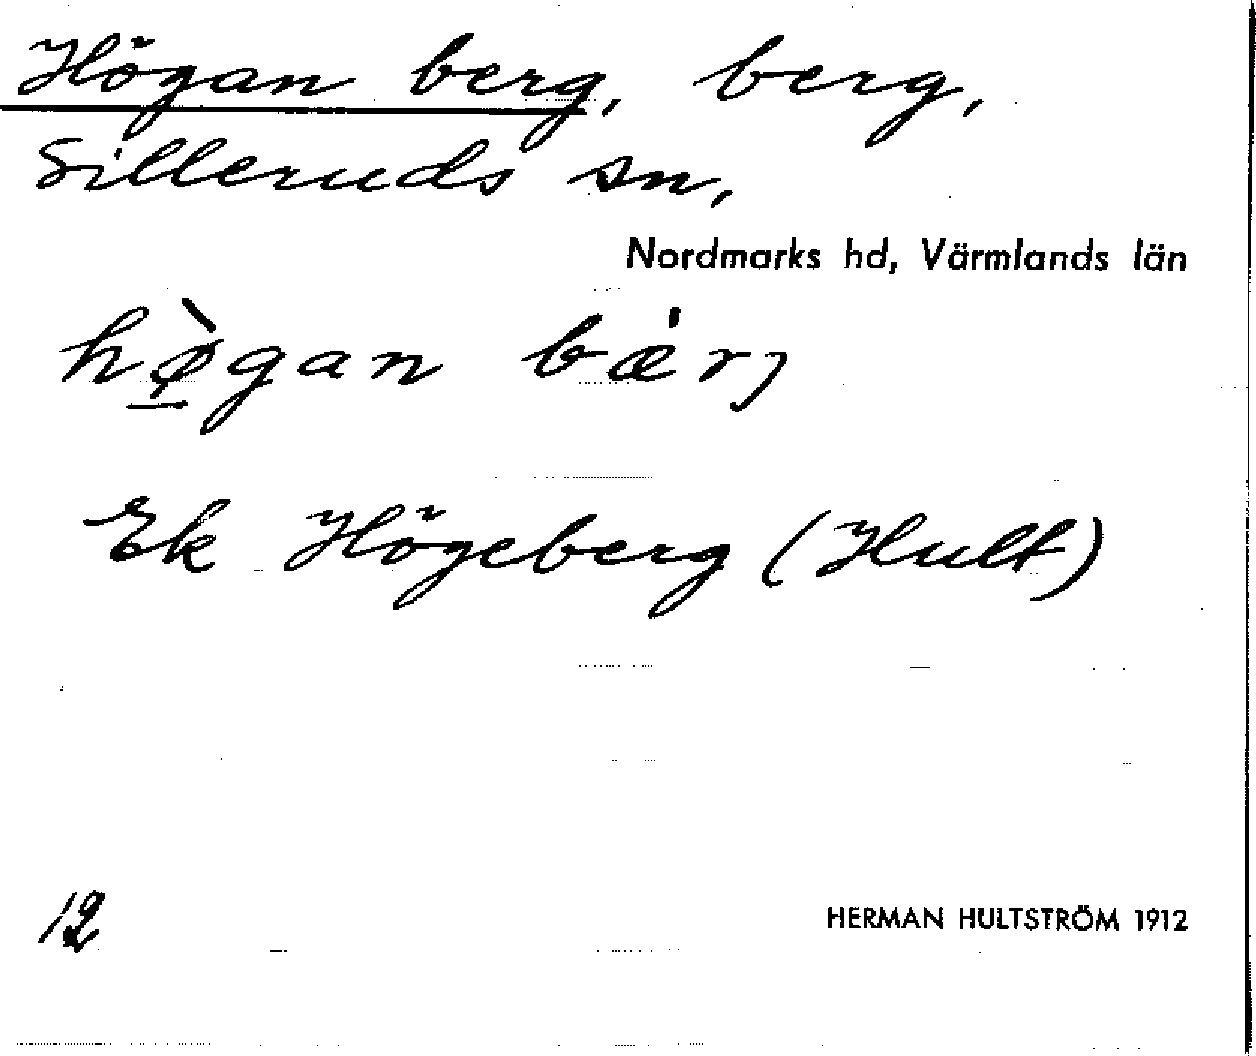 Högan berg, berg,
Silleruds sn,
Nordmarks hd, Värmlands län
hø̀gan bǽrj
Ek Högeberg (Hult)
12
HERMAN HULTSTRÖM 1912